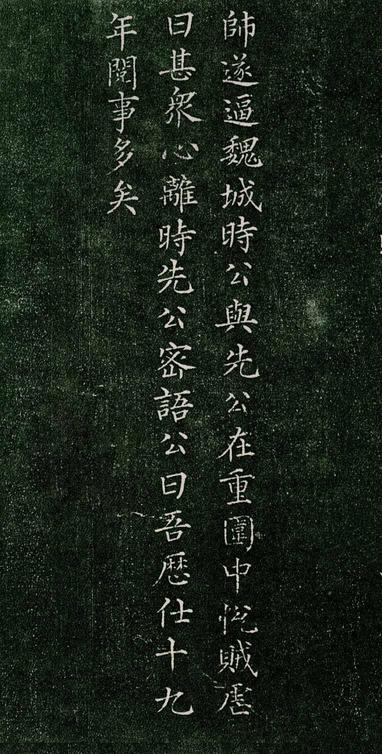 師遂逼魏城時公與先公在重圍中賊虐
日甚衆心離時先公密語公曰吾厯仕十九
年閱事多矣